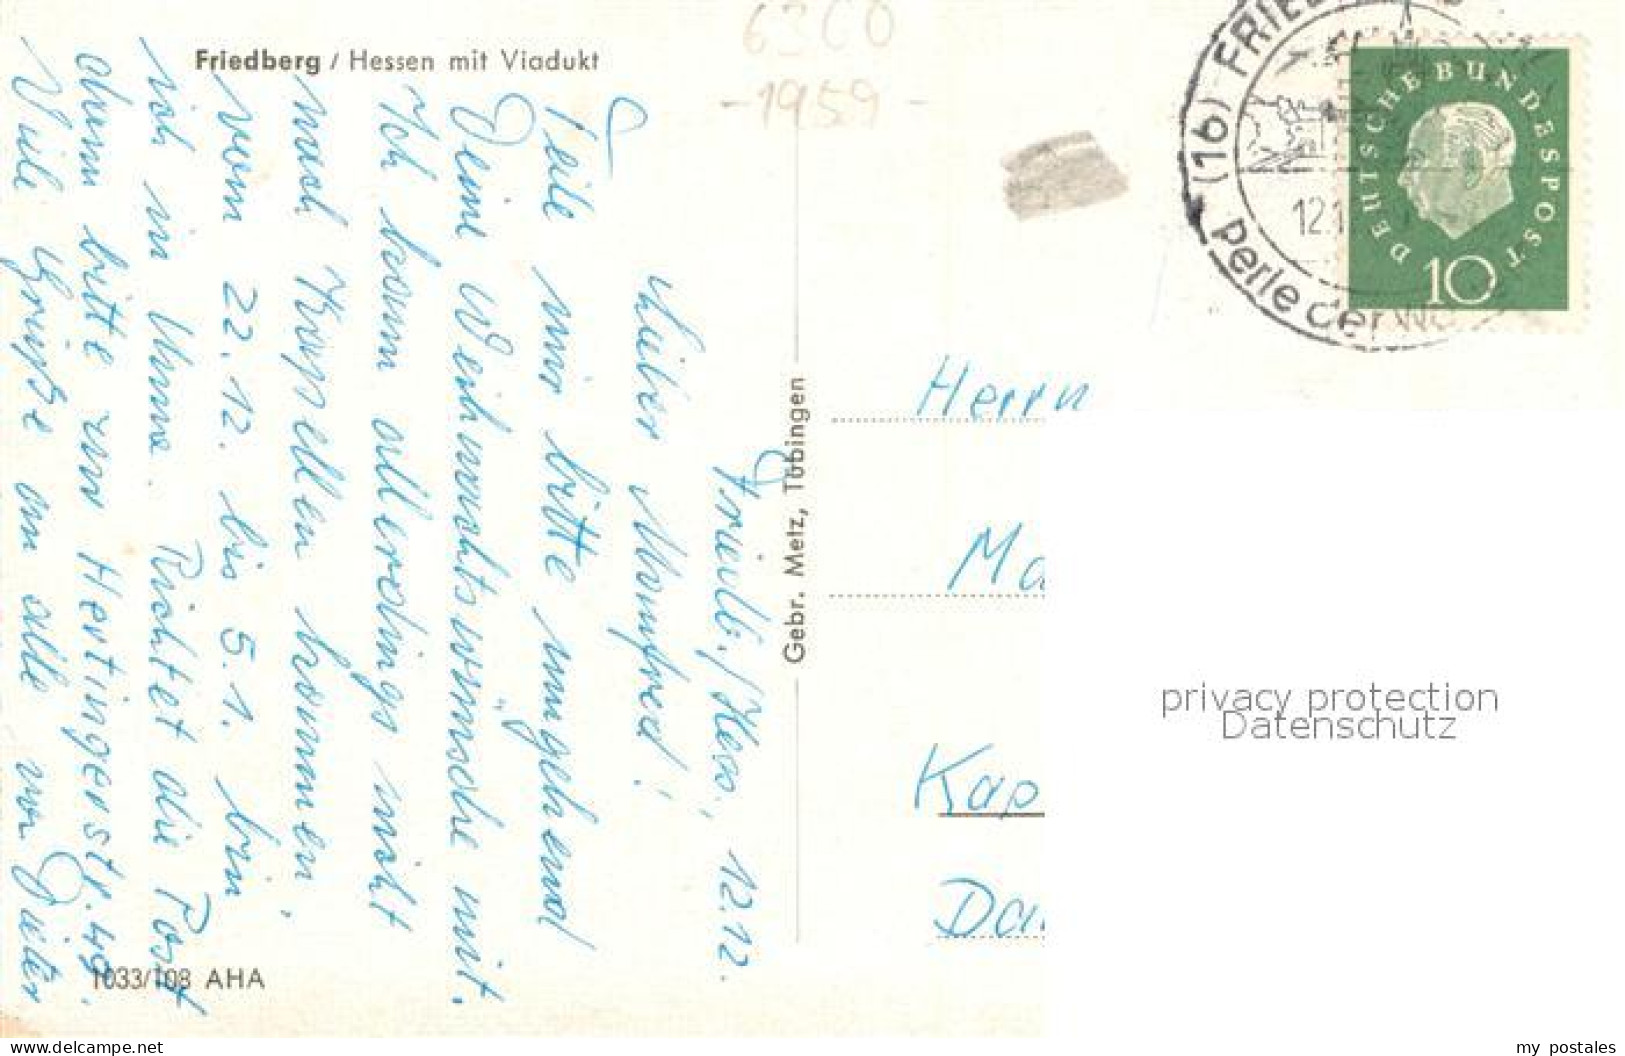 Friedberg / Hessen mit Viadukt
6360
-1959-
Friedb./Hess., 12.12.
Lieber Manfred!
Teile mir bitte umgehend
Deine Weihnachtswünsche mit.
Ich kann allerdings nicht
nach Kapellen kommen,
vom 22.12. bis 5.1. bin
ich in Unna. Richtet die Post
dann bitte zur Hertingerstr. 49.
Viele Grüße an alle von Dieter
1033/108 AHA
Gebr. Metz, Tübingen
(16) FRIEDBERG
Perle der
12.1
DEUTSCHE BUNDESPOST
10
Herrn
Ma
Kap
Da
privacy protection
Datenschutz
www.delcampe.net
my_postales